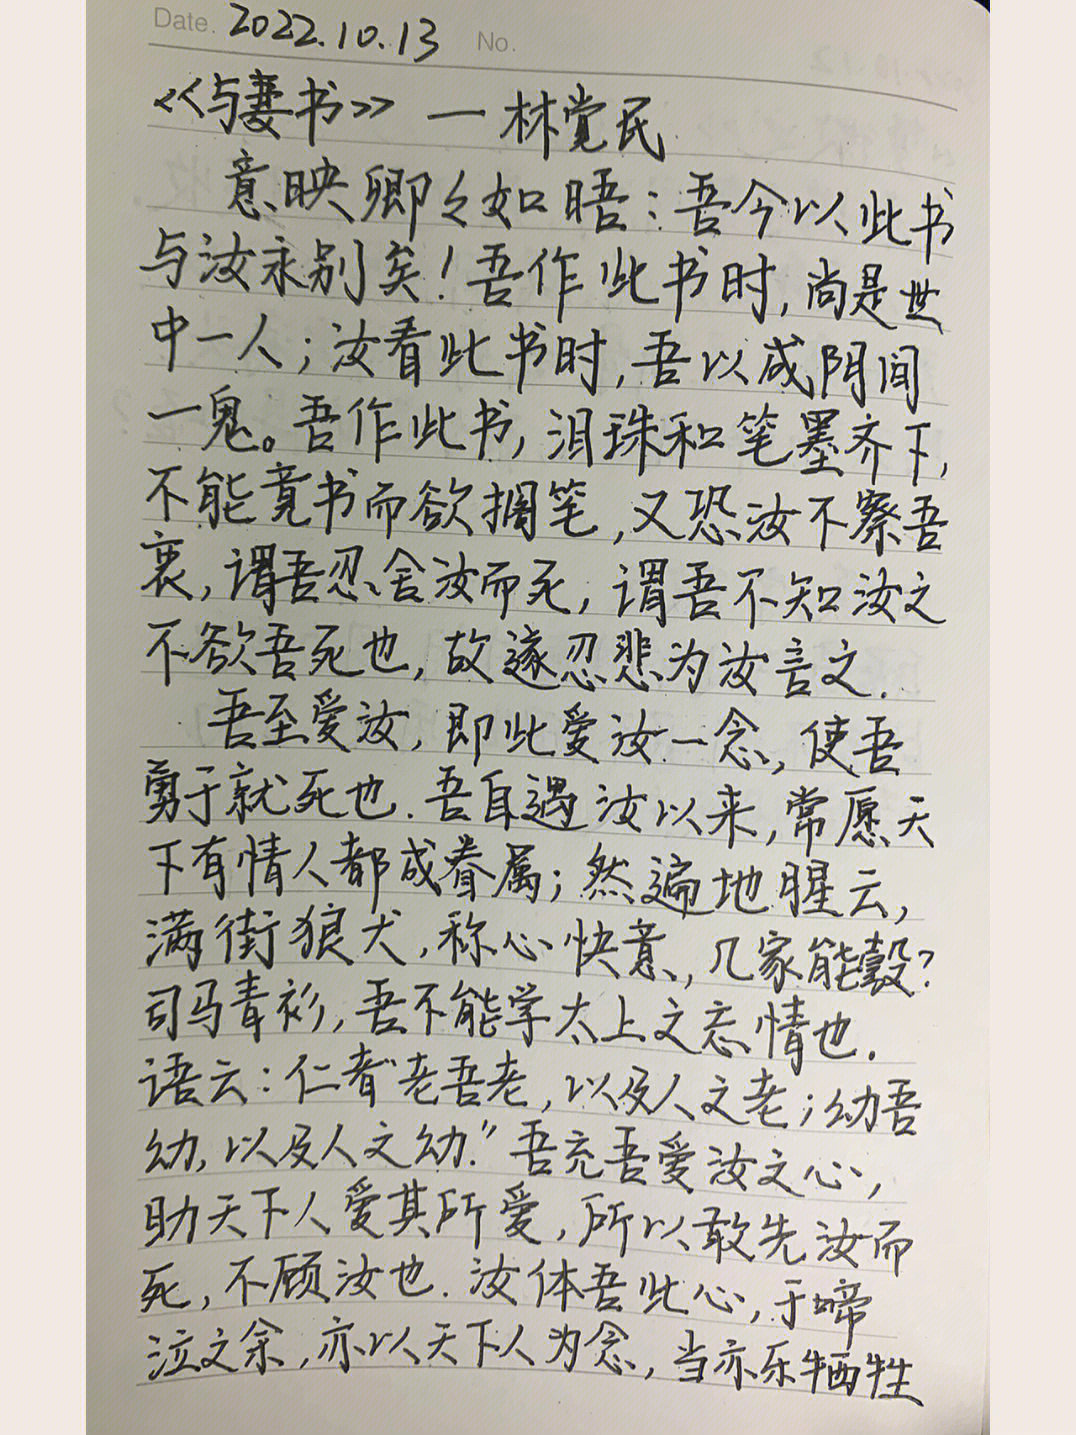 Date. 2022.10.13 No.
<<与妻书>> 一 林觉民
意映卿々如晤：吾今以此书
与汝永别矣！吾作此书时，尚是世
中一人；汝看此书时，吾以成阴间
一鬼。吾作此书，泪珠和笔墨齐下，
不能竟书而欲搁笔，又恐汝不察吾
衷，谓吾忍舍汝而死，谓吾不知汝之
不欲吾死也，故遂忍悲为汝言之.
吾至爱汝，即此爱汝一念，使吾
勇于就死也.吾自遇汝以来，常愿天
下有情人都成眷属；然遍地腥云，
满街狼犬，称心快意，几家能彀？
司马青衫，吾不能学太上之忘情也.
语云：仁者“老吾老，以及人之老；幼吾
幼，以及人之幼.”吾充吾爱汝之心，
助天下人爱其所爱，所以敢先汝而
死，不顾汝也.汝体吾此心，于啼
泣之余，亦以天下人为念，当亦乐牺牲